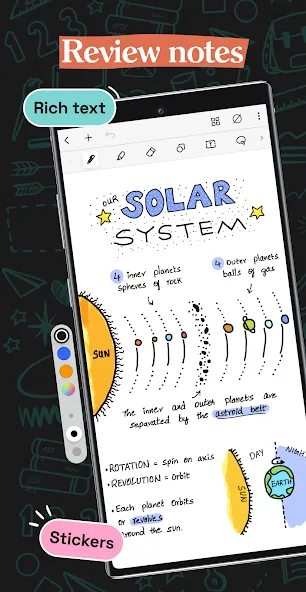 Review notes
Rich text
OUR
SOLAR
SYSTEM
4 inner planets
spheres of rock
4 Outer planets
balls of gas
SUN
The inner and outer planets are
separated by the astroid belt
• ROTATION = spin on axis
• REVOLUTION = Orbit
• Each planet orbits
or revolves
around the sun.
DAY
NIGH
SUN
EARTH
Stickers